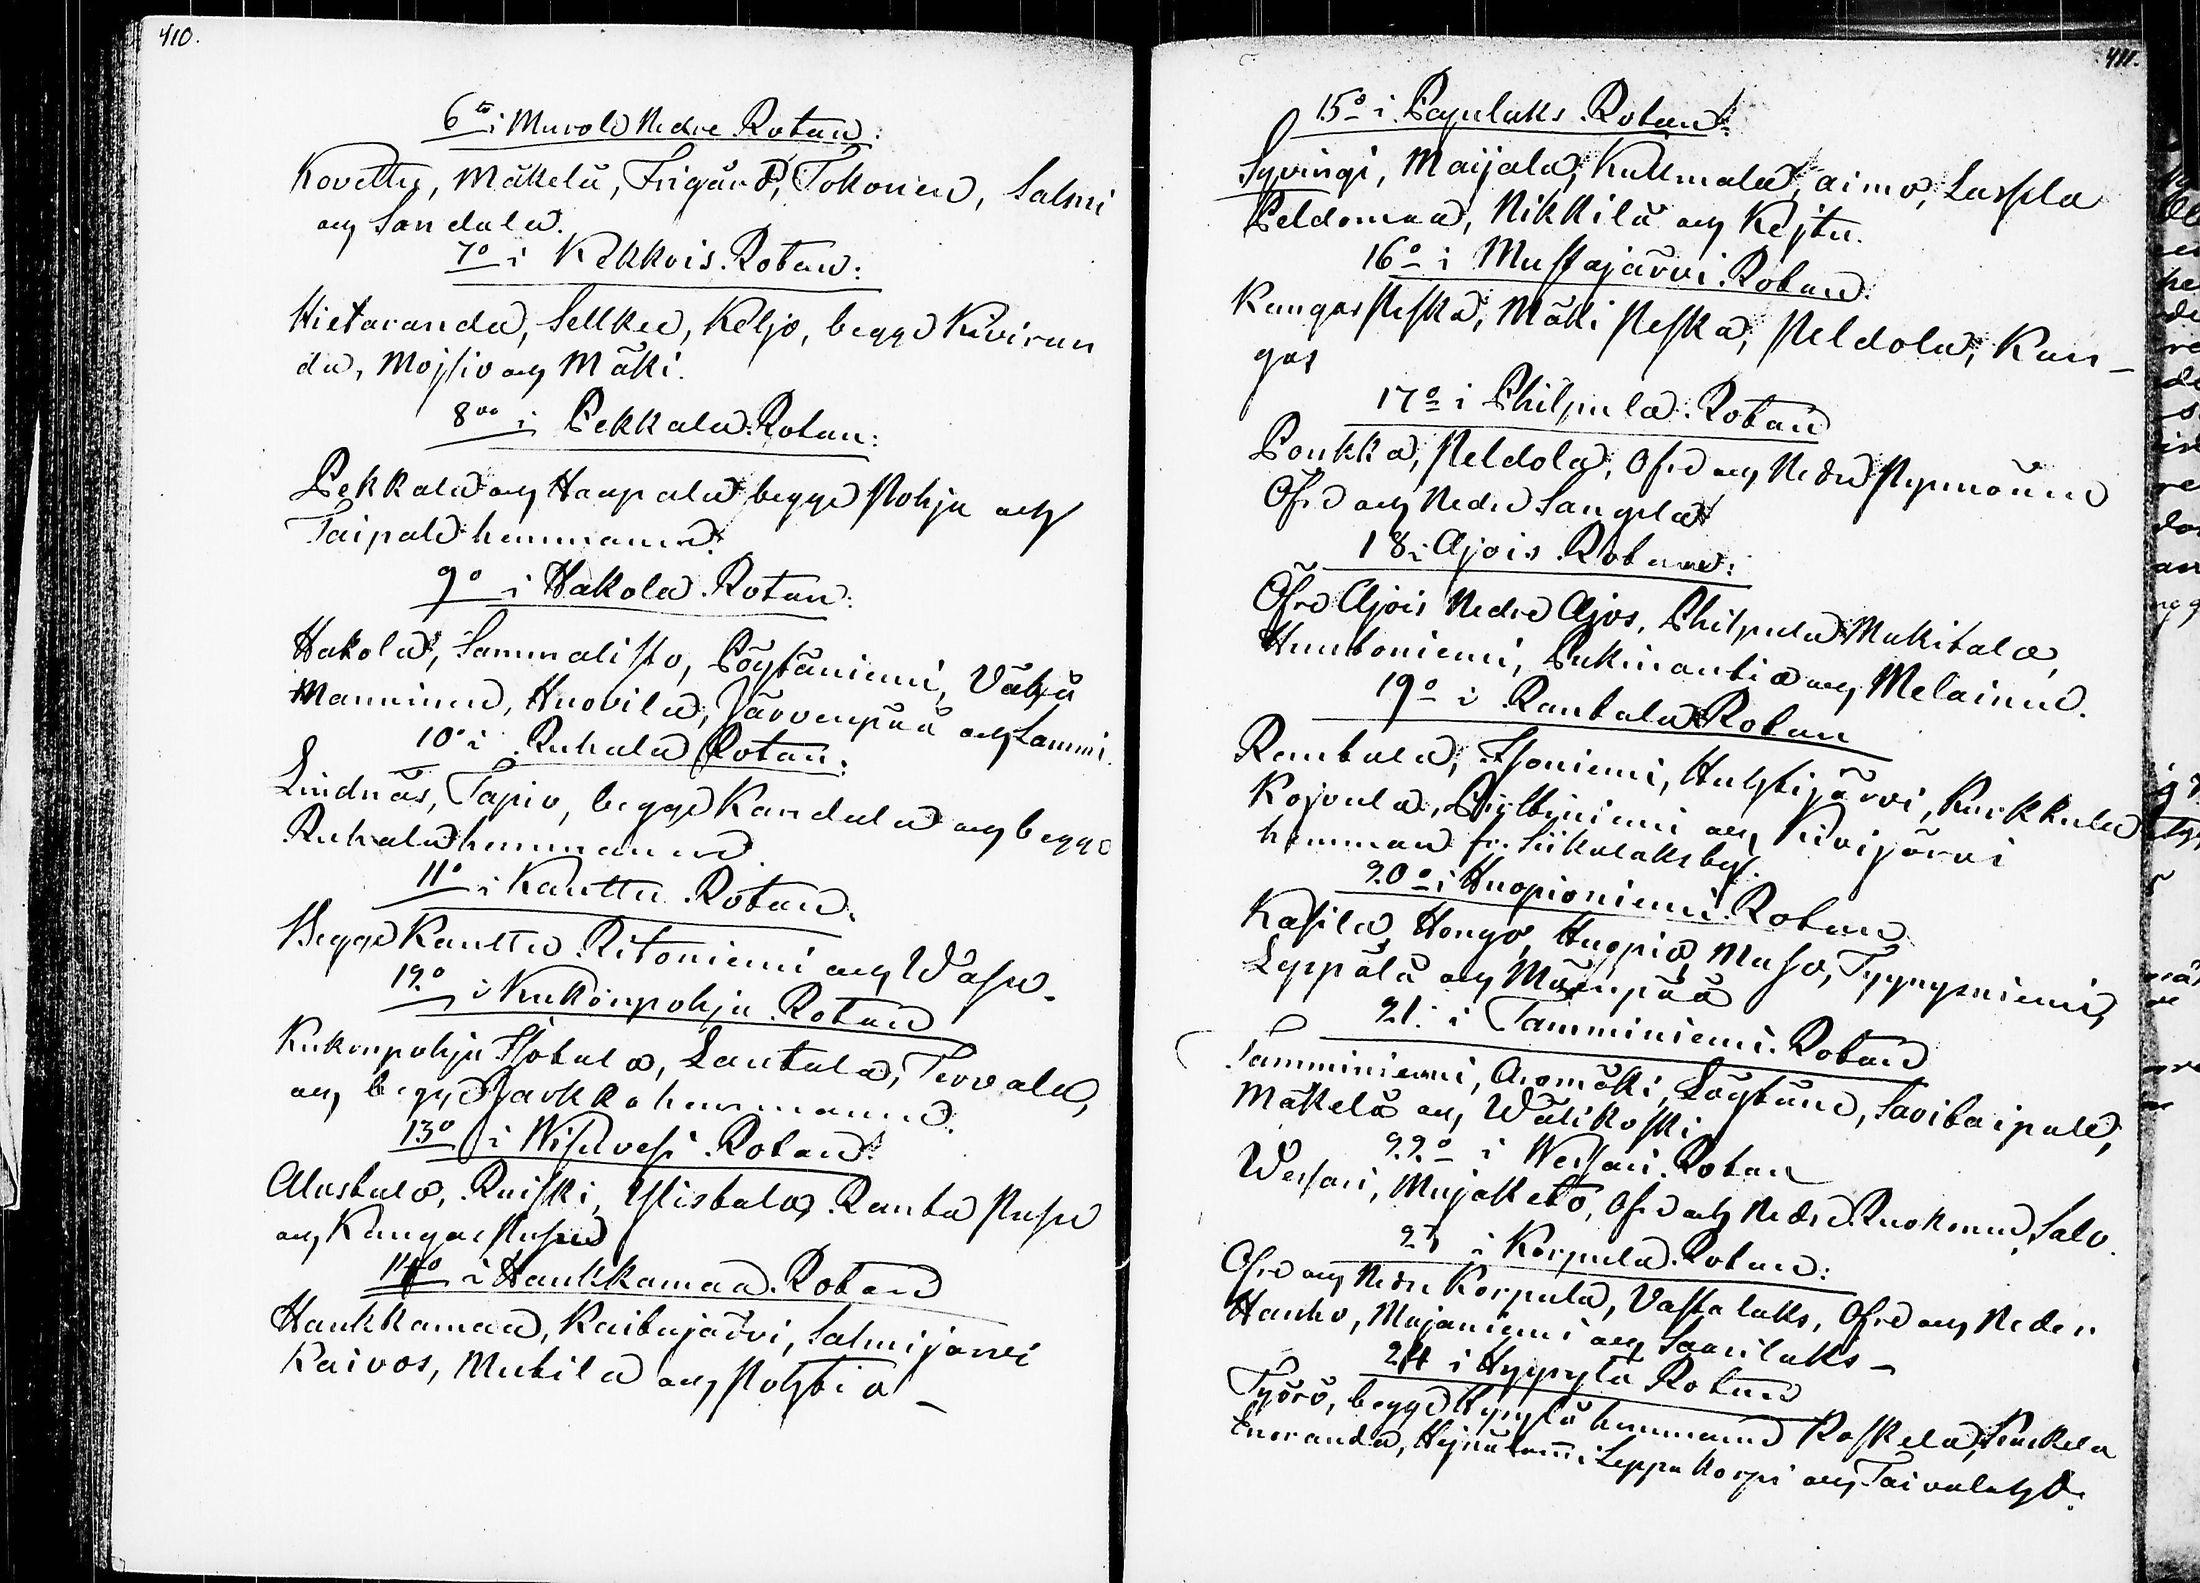 410.
6to i Murole Nedre Rotan:
Kovettu, Mäkelä, Frigård, Tokonen, Salmi
och Sandala.
7o i Kekkois Rotan:
Hietaranda, Sellkee, Keljo, begge Kiviran
da, Mojsio och Mäki.
8vo i Pekkala Rotan:
Pekkala och Haapala begge Pohja och
Taipale hemmanen.
9o i Hakola Rotan:
Hakola, Sammalisto, Pöytäniemi, Vähä
Manninen, Huovila, Järvenpää och Lammi.
10o i Ruhala Rotan:
Lindnäs, Tapio, begge Kandala och begge
Ruhala hemmanen.
11o i Kauttu Rotan.
Begge Kauttu Ritoniemi och Wasu.
12o i Kukonpohja Rotan
Kukonpohja Isotalo, Lautala, Tervala,
och begge Jarkko hemmanen.
13o i Wisuvesi Rotan
Alastalo, Ruiski, Ylistalo, Ranta Pusu
och Kangas Pusu
14o i Haukkamaa Rotan
Haukkamaa, Kaitajärvi, Salmijärvi
Kaivos, Mutila och Pohtio –
411.
15o i Papulaks Rotan:
Syvingi, Maijala, Kullmala, Aimo, Lassila
Peldomaa, Nikkilä och Kejtu.
16o i Mustajärvi Rotan.
Kangas Peska, Mäki Peska, Peldola, Kan–
gas
17o i Philpula Rotan
Poukka, Peldola, Ofre och Nedre Pynnönen
Ofre och Nedre Sangela
18 i Ajois Rotan:
Öfre Ajois Nedre Ajos, Philpula Makitalo,
Huutoniemi, Pukinantio och Melainen.
19o i Rantala Rotan
Rantala, Isoniemi, Huhtijärvi, Kurkkula
Kojola, Pilttiniemi och Kivijärvi
hemman fr. Siikalaks by.
20o i Huopioniemi Rotan
Kasila, Hongo, Huopio, Muso, Tyynysniemi,
Leppälä och Mäenpää
21. i Tamminiemi Rotan
Tamminiemi, Aromäki, Löytäne, Savitaipale,
Mäkelä och Wälikoski
22o i Wessari Rotan
Wessari, Mujaketo, Ofre och Nedre Ruokonen, Salo.
23 i Korpula Rotan:
Ofre och Nedre Korpula, Vastalaks, Ofre och Nedre
Hanho, Majaniemi och Saarilaks –
24 i Hyypytä Rotan
Työrö, begge Hypytä hemmanen Koskela, Penkela
Enoranda, Hejnälammi Leppäkorpi och Taivalaho.